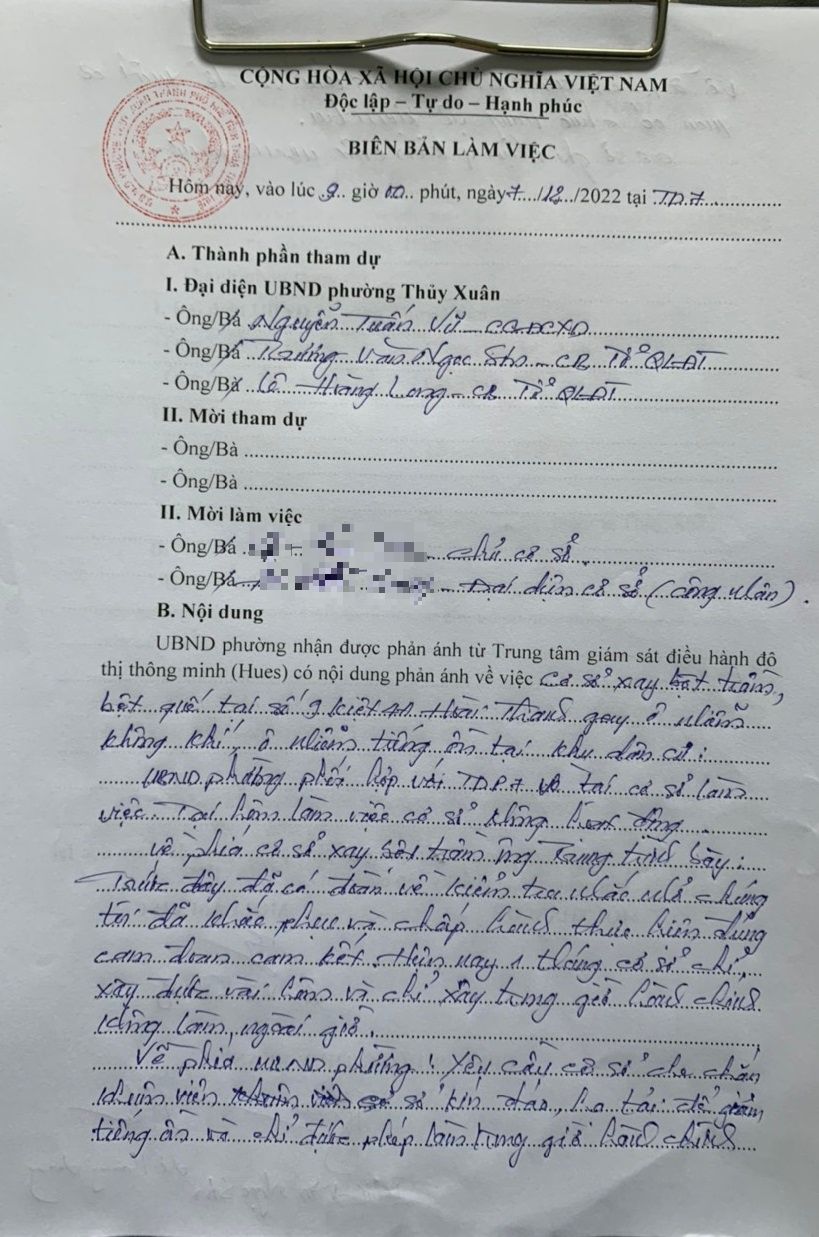 CỘNG HÒA XÃ HỘI CHỦ NGHĨA VIỆT NAM
Độc lập – Tự do – Hạnh phúc
BIÊN BẢN LÀM VIỆC
Hôm nay, vào lúc 9 giờ 00 phút, ngày 7/12/2022 tại TDP.7
A. Thành phần tham dự
I. Đại diện UBND phường Thủy Xuân
- Ông/Bà Nguyễn Tuấn Vũ - CBĐCXD
- Ông/Bà Trương Văn Ngọc Sơn - CB Tổ QLĐT
- Ông/Bà Lê Hoàng Long - CB Tổ QLĐT
II. Mời tham dự
- Ông/Bà
- Ông/Bà
II. Mời làm việc
- Ông/Bà - chủ cơ sở.
- Ông/Bà - Đại diện cơ sở (công nhân).
B. Nội dung
UBND phường nhận được phản ánh từ Trung tâm giám sát điều hành đô
thị thông minh (Hues) có nội dung phản ánh về việc cơ sở xay bột trầm,
bột quế tại số 9 kiệt 44 Hoài Thanh gây ô nhiễm
không khí, ô nhiễm tiếng ồn tại khu dân cư:
UBND phường phối hợp với TDP7 về tại cơ sở làm
việc. Tại hôm làm việc cơ sở không hoạt động.
Về phía cơ sở xay bột trầm ông Trung trình bày:
Trước đây đã có đoàn về kiểm tra nhắc nhở chúng
tôi đã khắc phục và chấp hành thực hiện đúng
cam đoan cam kết. Hiện nay 1 tháng cơ sở chỉ
xay được vài lần và chỉ xay trong giờ hành chính
không làm ngoài giờ.
Về phía UBND phường: Yêu cầu cơ sở che chắn
khuôn viên cơ sở kín đáo, hạ tải để giảm
tiếng ồn và chỉ được phép làm trong giờ hành chính